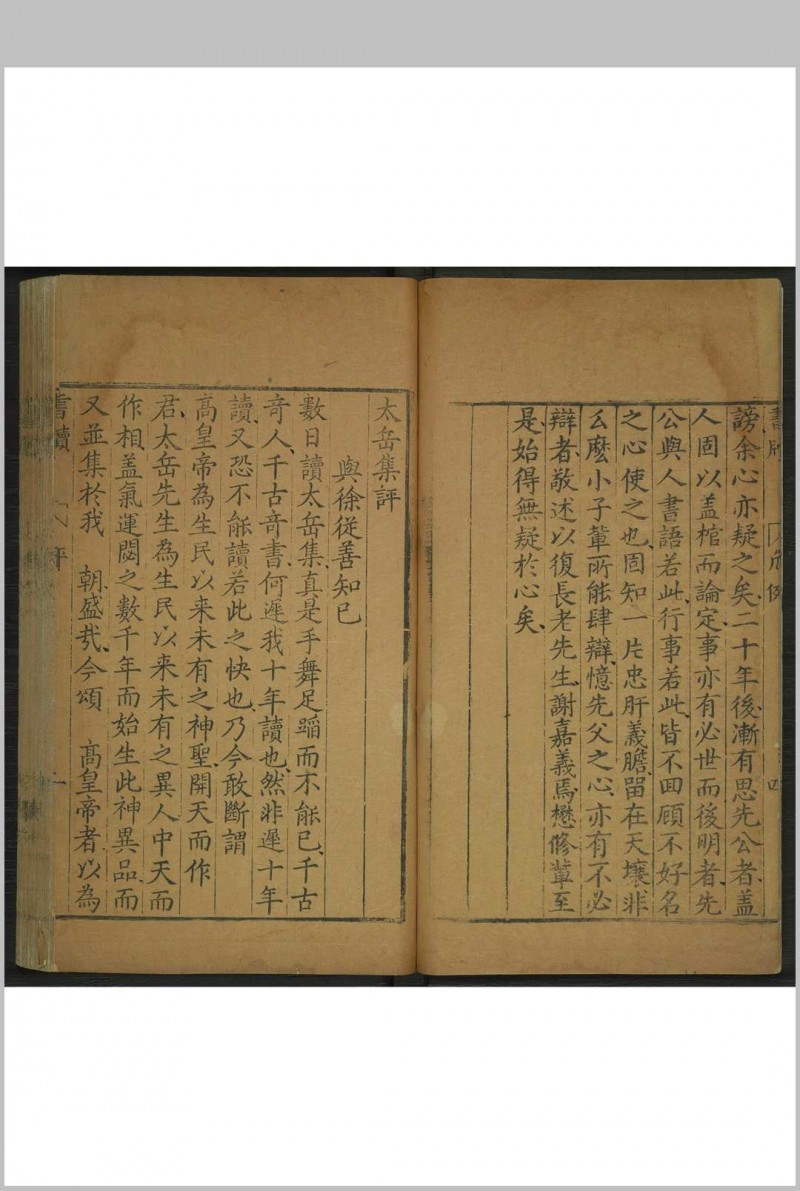 謗余心亦疑之矣二十年後漸有思先公者蓋
人固以蓋棺而論定事亦有必世而後明者先
公與人書語若此行事若此皆不囬顧不好名
之心使之也固知一片忠肝義膽留在天壤非
么麽小子輩所能肆辯憶先父之心亦有不必
辯者敬述以復長老先生謝嘉義焉懋修輩至
是始得無疑於心矣
太岳集評
與徐從善知已
數日讀太岳集真是手舞足蹈而不能已千古
竒人千古竒書何遲我十年讀也然非遲十年
讀又恐不能讀若此之快也乃今敢斷謂
高皇帝為生民以来未有之神聖開天而作
君太岳先生為生民以来未有之異人中天而
作相盖氣運閟之數千年而始生此神異品而
又並集於我　朝盛㦲今頌　高皇帝者以為
書牘　評　一